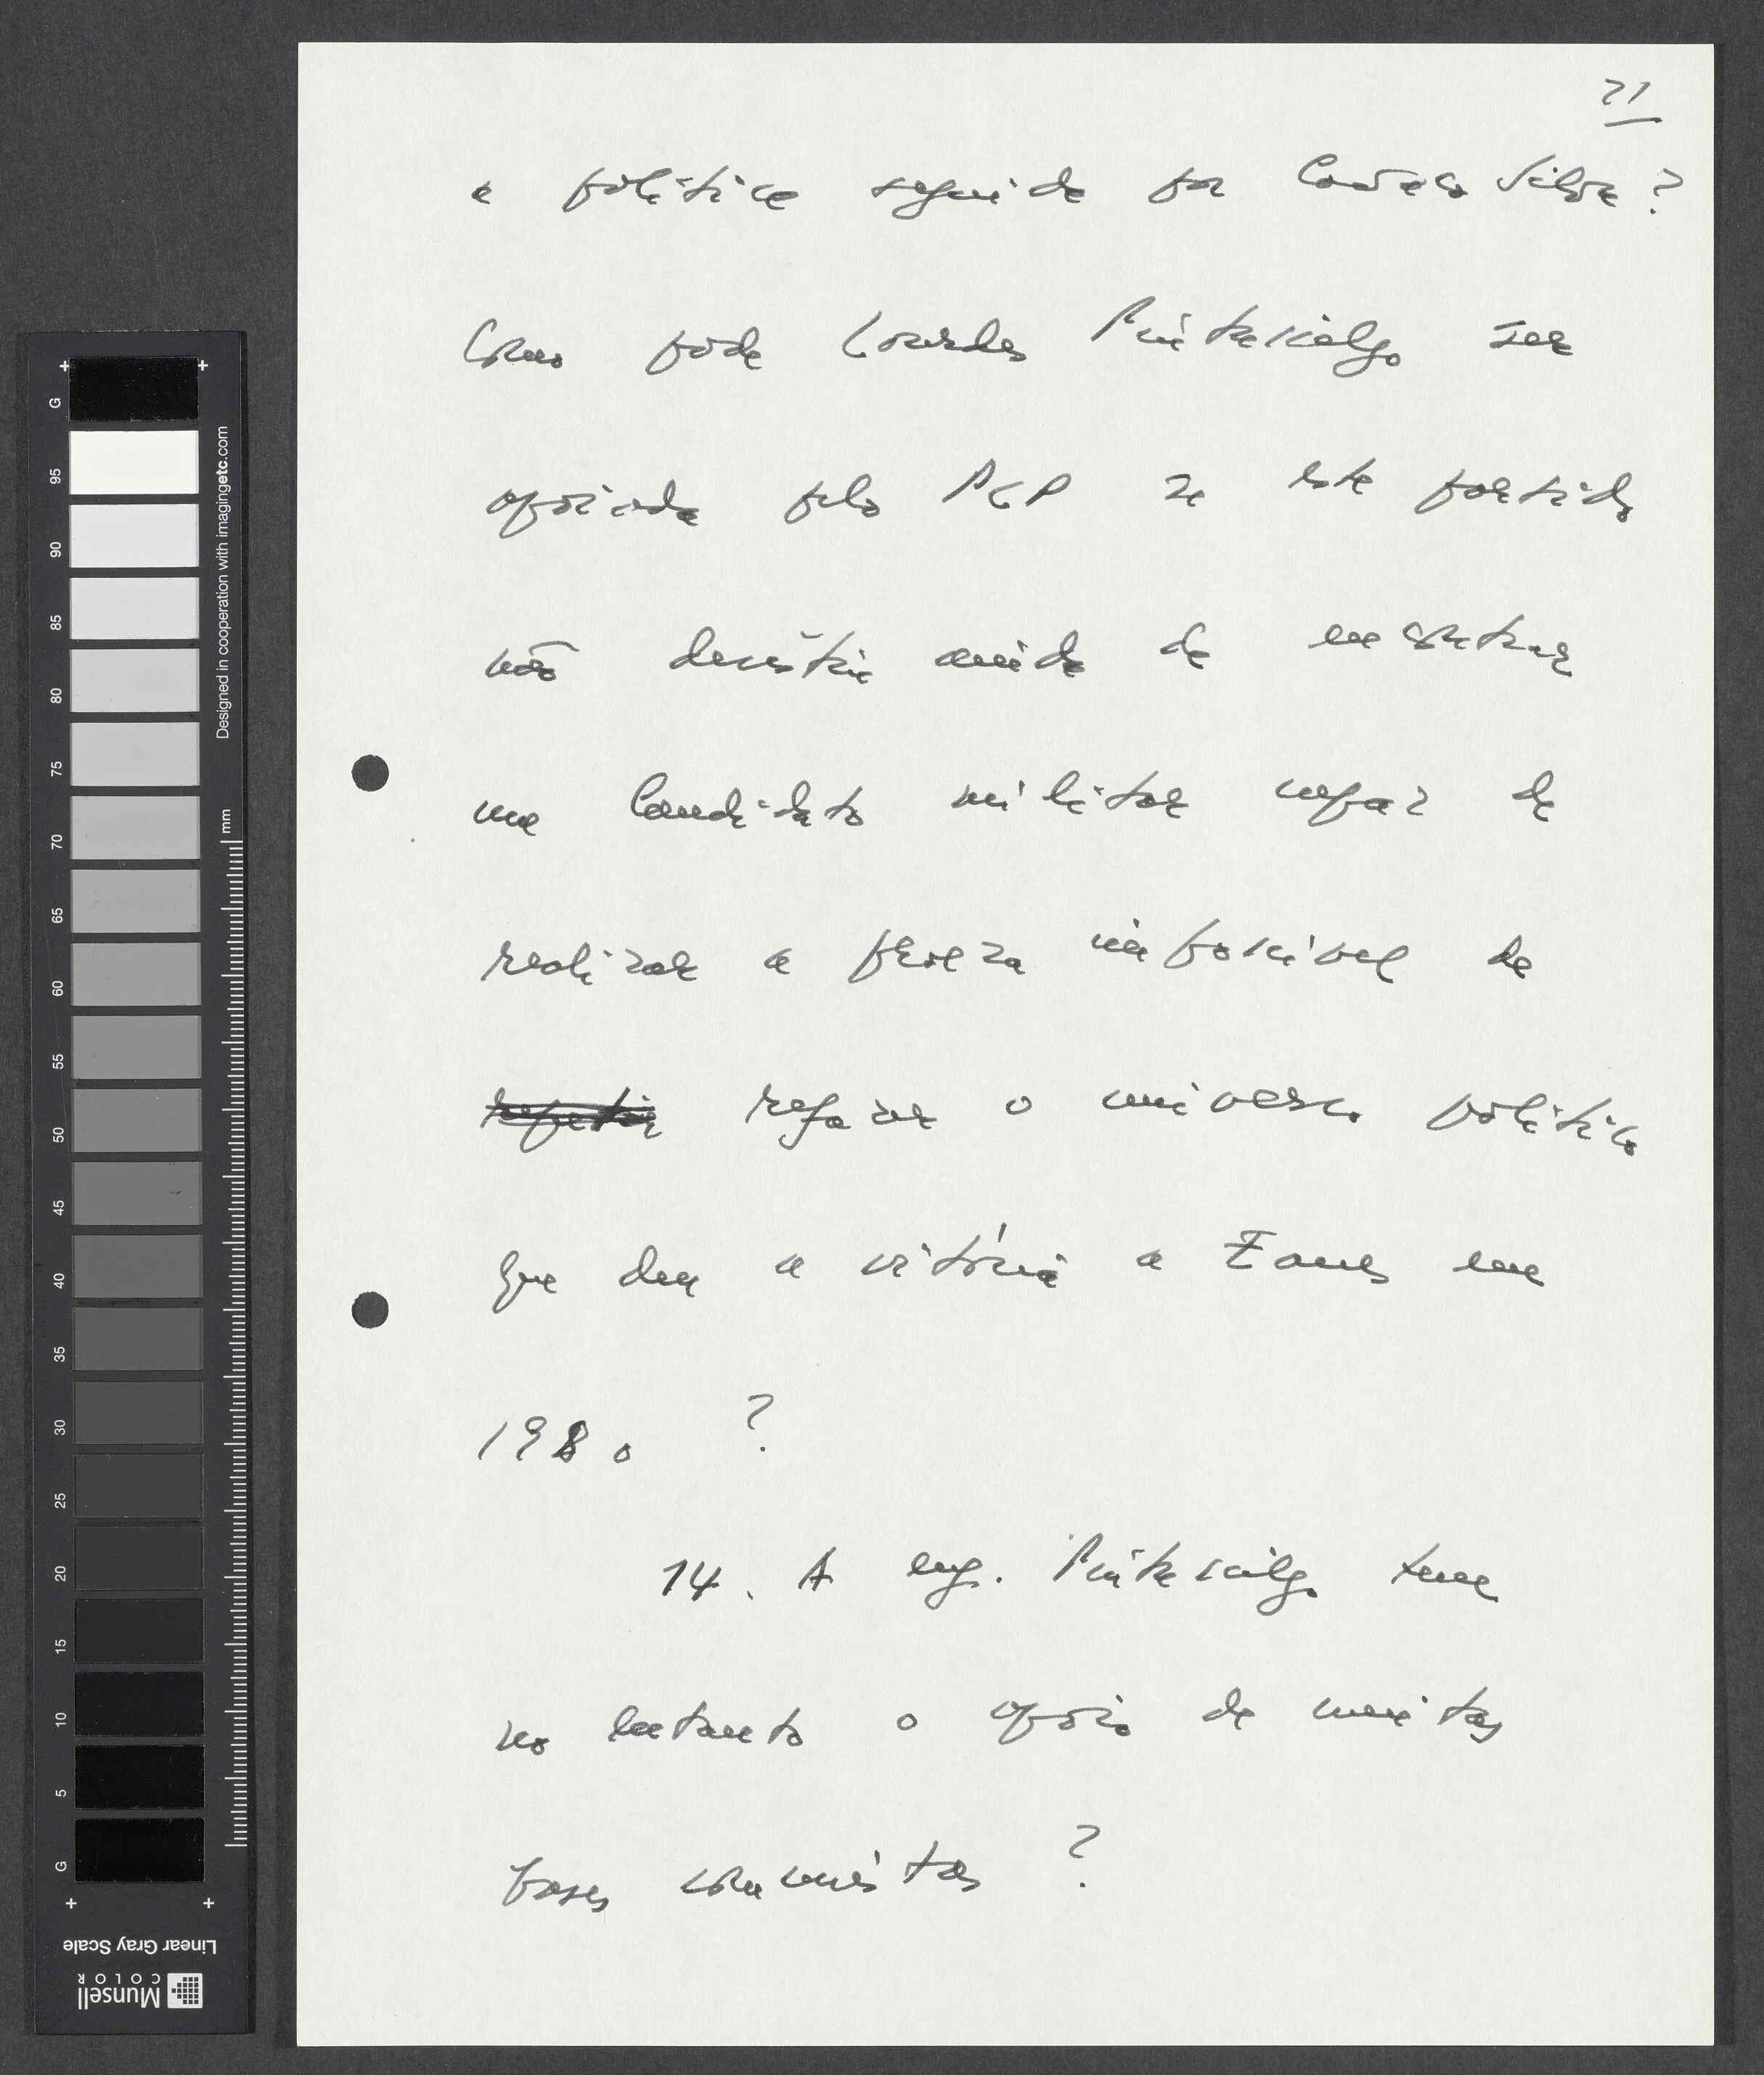 21
a política seguida por Cavaco Silva?
Como pode Lourdes Pintasilgo ser
apoiada pelo PCP se este partido
não desistiu ainda de encontrar
um candidato militar capaz de
realizar a proeza impossível de
repetir refazer o universo político
que deu a vitória a Eanes em
1980 ?
14. A eng. Pintasilgo tem
no entanto o apoio de muitas
bases comunistas ?
G
95
90
85
80
75
70
65
60
55
50
45
40
35
30
25
20
15
10
5
G
Designed in cooperation with imagingetc.com
mm
Linear Gray Scale
Munsell
COLOR